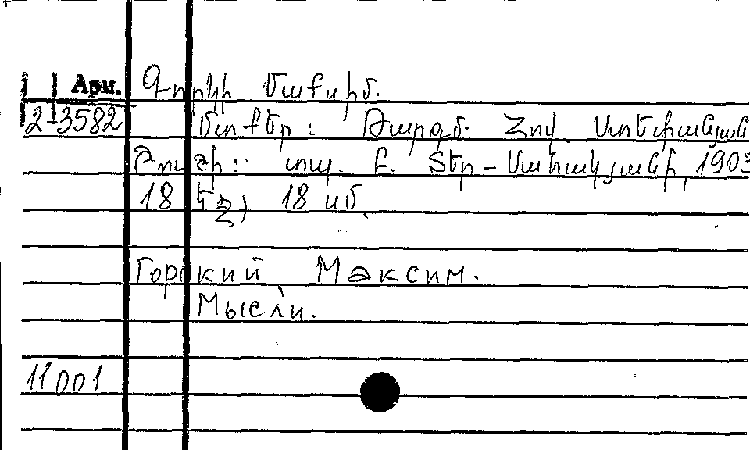 Арм. Գորկի Մաքսիմ.
2-3582 Մտքեր: Թարգմ. Հով. Ստեփանյան
Թուշի: տպ. Բ. Տեր-Սահակյանի, 1903
18 եջ, 18 սմ.
Горький Максим.
Мысли.
11001